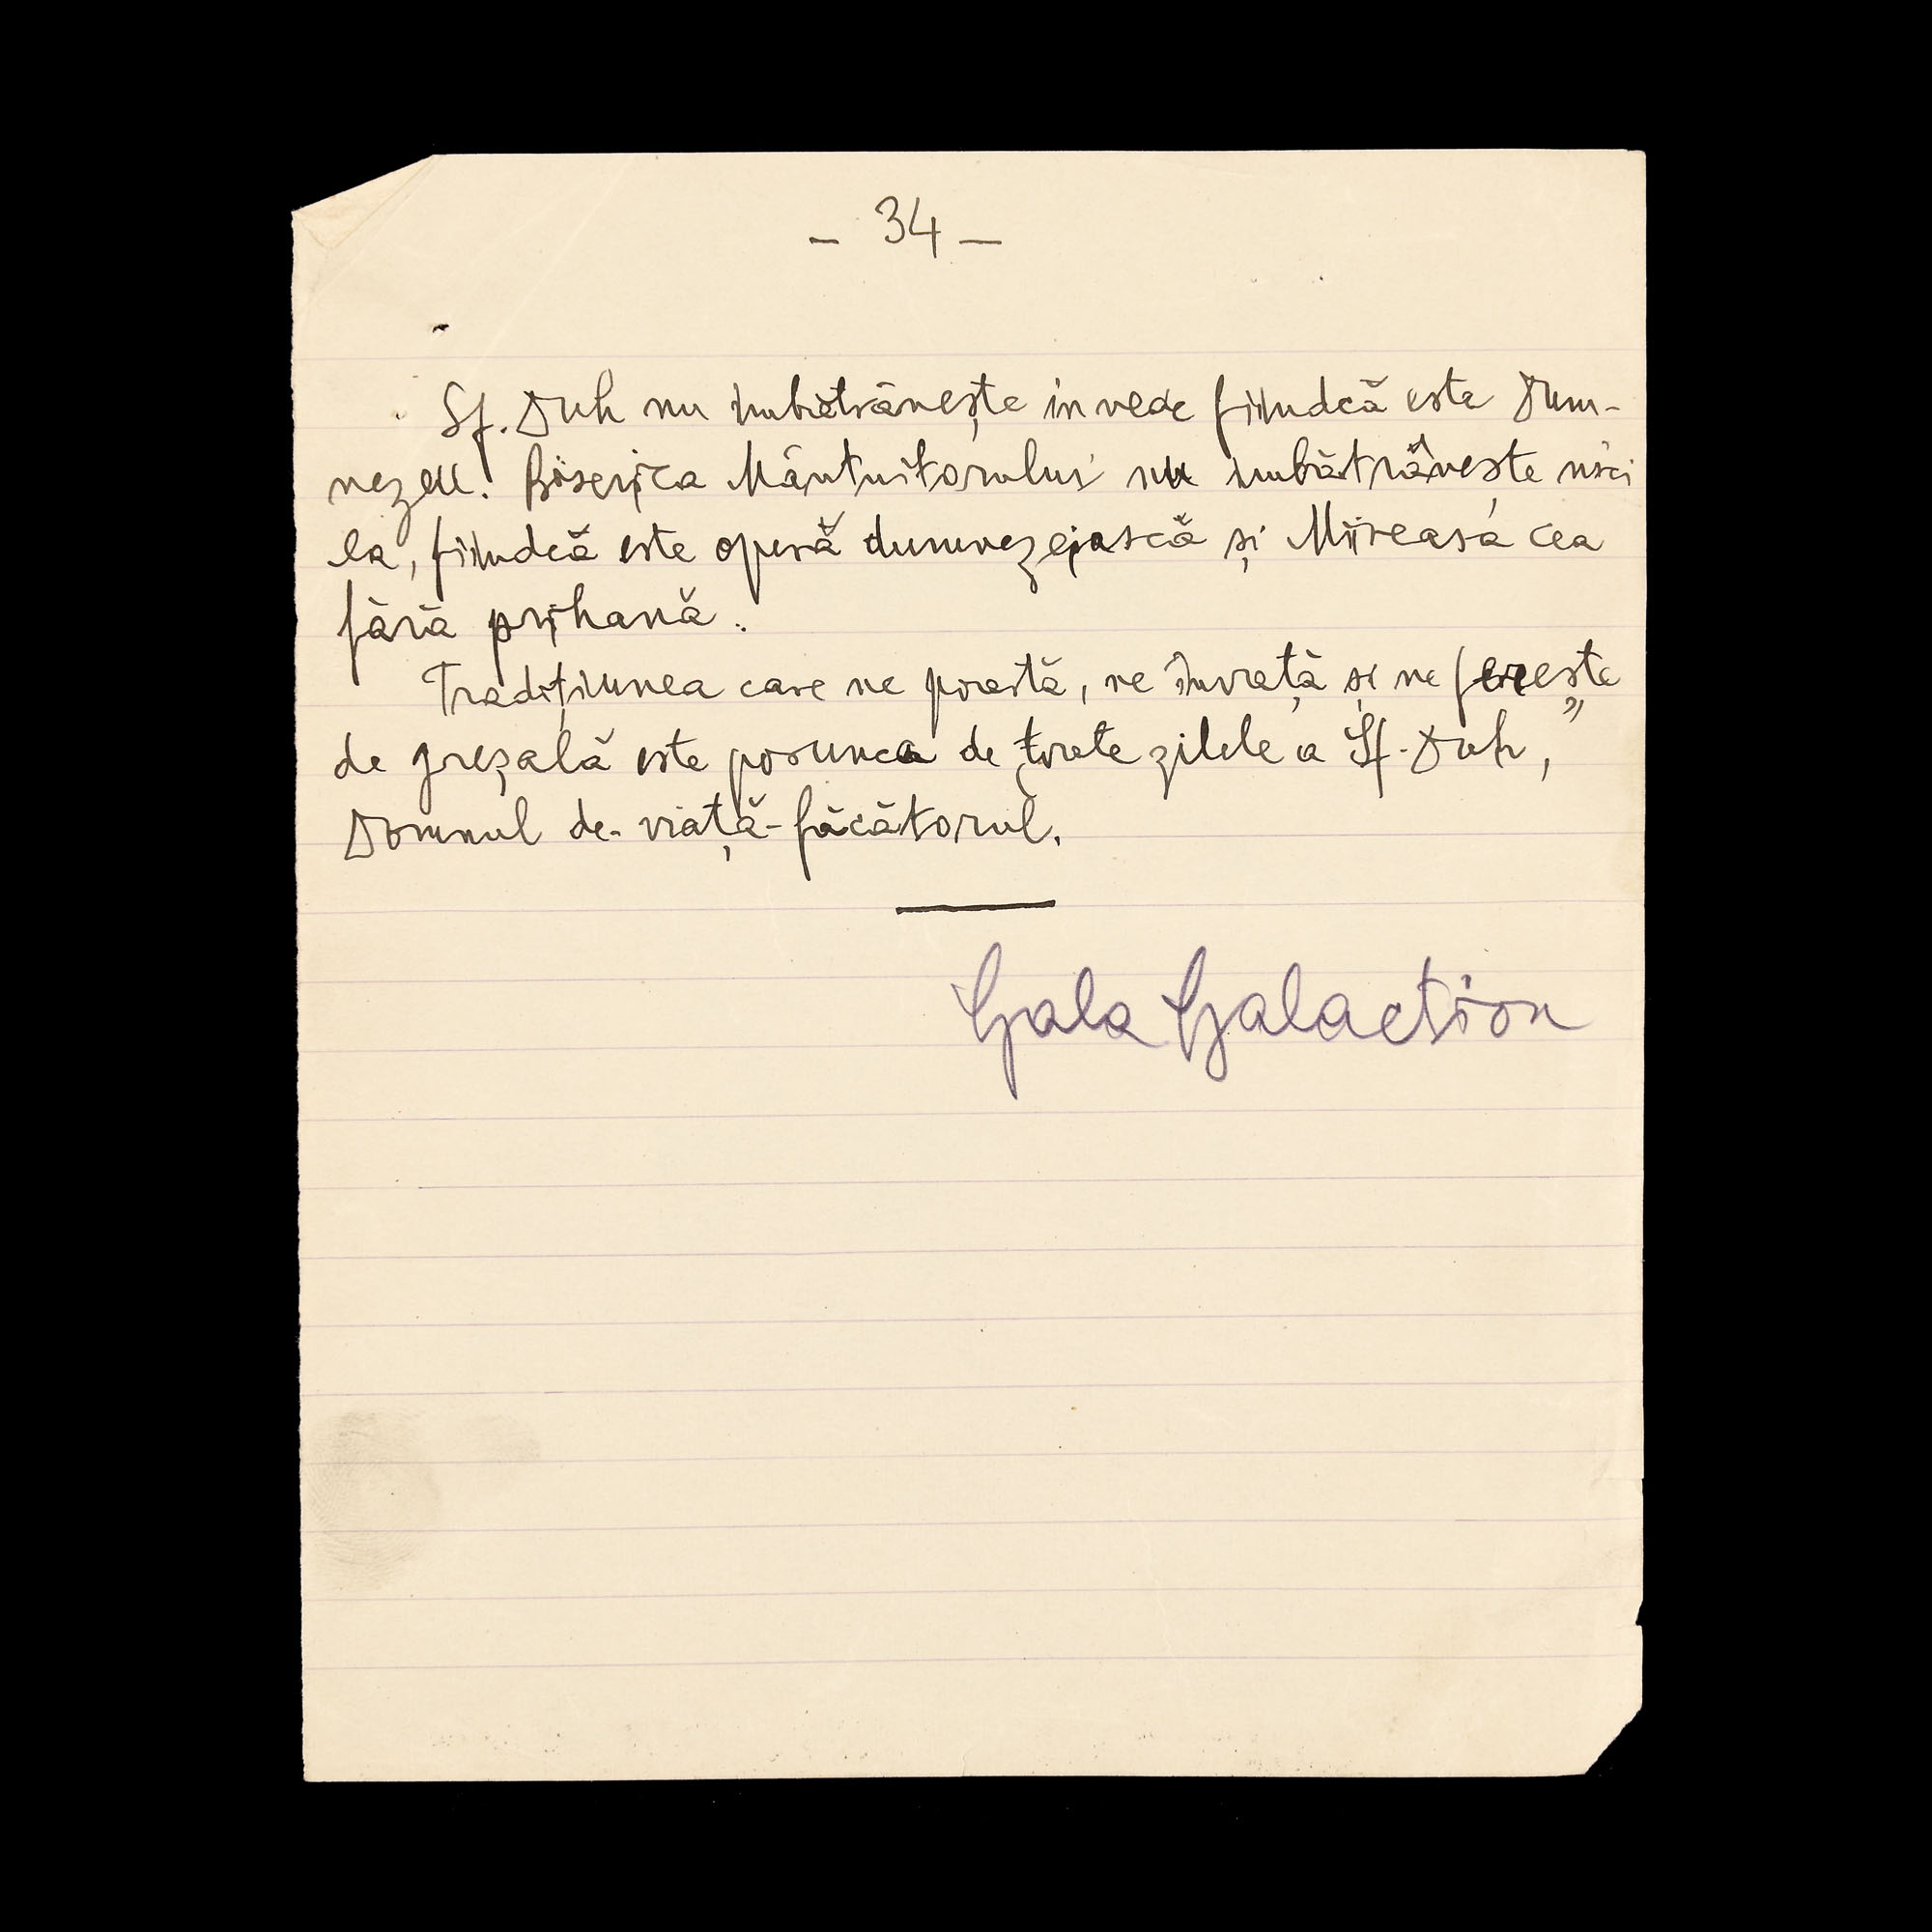 - 34 -
Sf. Duh nu îmbătrânește in veac fiindcă este Dum-
nezeu. Biserica Mântuitorului nu îmbătrânește nici
ea, fiindcă este operă dumnezeiască și Mireasa cea
fără prihană.
Tradițiunea care ne poartă, ne învață și ne ferește
de greșală este porunca de toate zilele a Sf. Duh, „
Domnul de-viață-făcătorul.
Gala Galaction